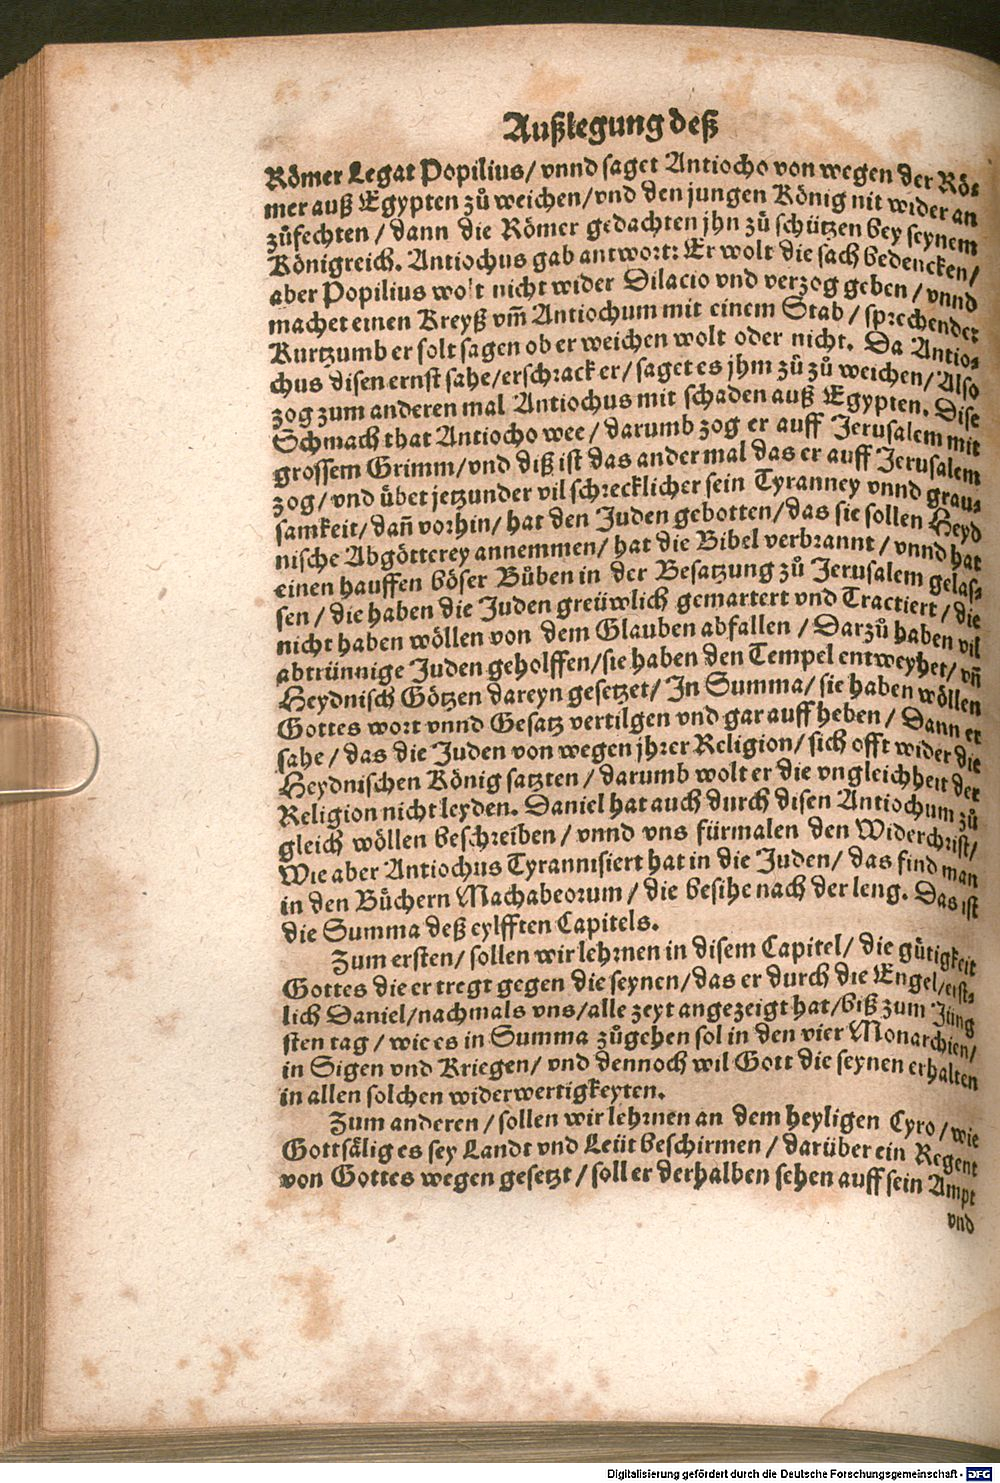 Außlegung deß
Römer Legat Popilius/ vnnd saget Antiocho von wegen der Rö⸗
mer auß Egypten zů weichen/ vnd den jungen König nit wider an
zůfechten / dann die Römer gedachten jhn zů schützen bey seynem
Königreich. Antiochus gab antwort: Er wolt die sach bedencken/
aber Popilius wolt nicht wider Dilacio vnd verzog geben / vnnd
machet einen Kreyß vm̃ Antiochum mit einem Stab / sprechender
Kurtzumb er solt sagen ob er weichen wolt oder nicht. Da Antio⸗
chus disen ernst sahe/ erschrack er/ saget es jhm zů zů weichen/ Also
zog zum anderen mal Antiochus mit schaden auß Egypten. Dise
Schmach that Antiocho wee / darumb zog er auff Jerusalem mit
grossem Grimm/ vnd diß ist das ander mal das er auff Jerusalem
zog / vnd übet jetzunder vil schrecklicher sein Tyranney vnnd grau⸗
samkeit/ dañ vorhin/ hat den Juden gebotten/ das sie sollen Heyd
nische Abgötterey annemmen/ hat die Bibel verbrannt / vnnd hat
einen hauffen böser Bůben in der Besatzung zů Jerusalem gelas⸗
sen / die haben die Juden greüwlich gemartert vnd Tractiert / die
nicht haben wöllen von dem Glauben abfallen / Darzů haben vil
abtrünnige Juden geholffen/ sie haben den Tempel entweyhet/ vñ
Heydnisch Götzen dareyn gesetzet/ In Summa/ sie haben wöllen
Gottes wort vnnd Gesatz vertilgen vnd gar auff heben / Dann er
sahe / das die Juden von wegen jhrer Religion/ sich offt wider die
Heydnischen König satzten / darumb wolt er die vngleichheit der
Religion nicht leyden. Daniel hat auch durch disen Antiochum zů
gleich wöllen beschreiben / vnnd vns fürmalen den Widerchrist/
Wie aber Antiochus Tyrannisiert hat in die Juden/ das find man
in den Büchern Machabeorum / die besihe nach der leng. Das ist
die Summa deß eylfften Capitels.
Zum ersten/ sollen wir lehrnen in disem Capitel/ die gütigkeit
Gottes die er tregt gegen die seynen/ das er durch die Engel/ erst⸗
lich Daniel/ nachmals vns/ alle zeyt angezeigt hat/ biß zum Jüng
sten tag / wie es in Summa zůgehen sol in den vier Monarchien/
in Sigen vnd Kriegen/ vnd dennoch wil Gott die seynen erhalten
in allen solchen widerwertigkeyten.
Zum anderen / sollen wir lehrnen an dem heyligen Cyro / wie
Gottsälig es sey Landt vnd Leüt beschirmen / darüber ein Regent
von Gottes wegen gesetzt / soll er derhalben sehen auff sein Ampt
vnd
Digitalisierung gefördert durch die Deutsche Forschungsgemeinschaft - DFG